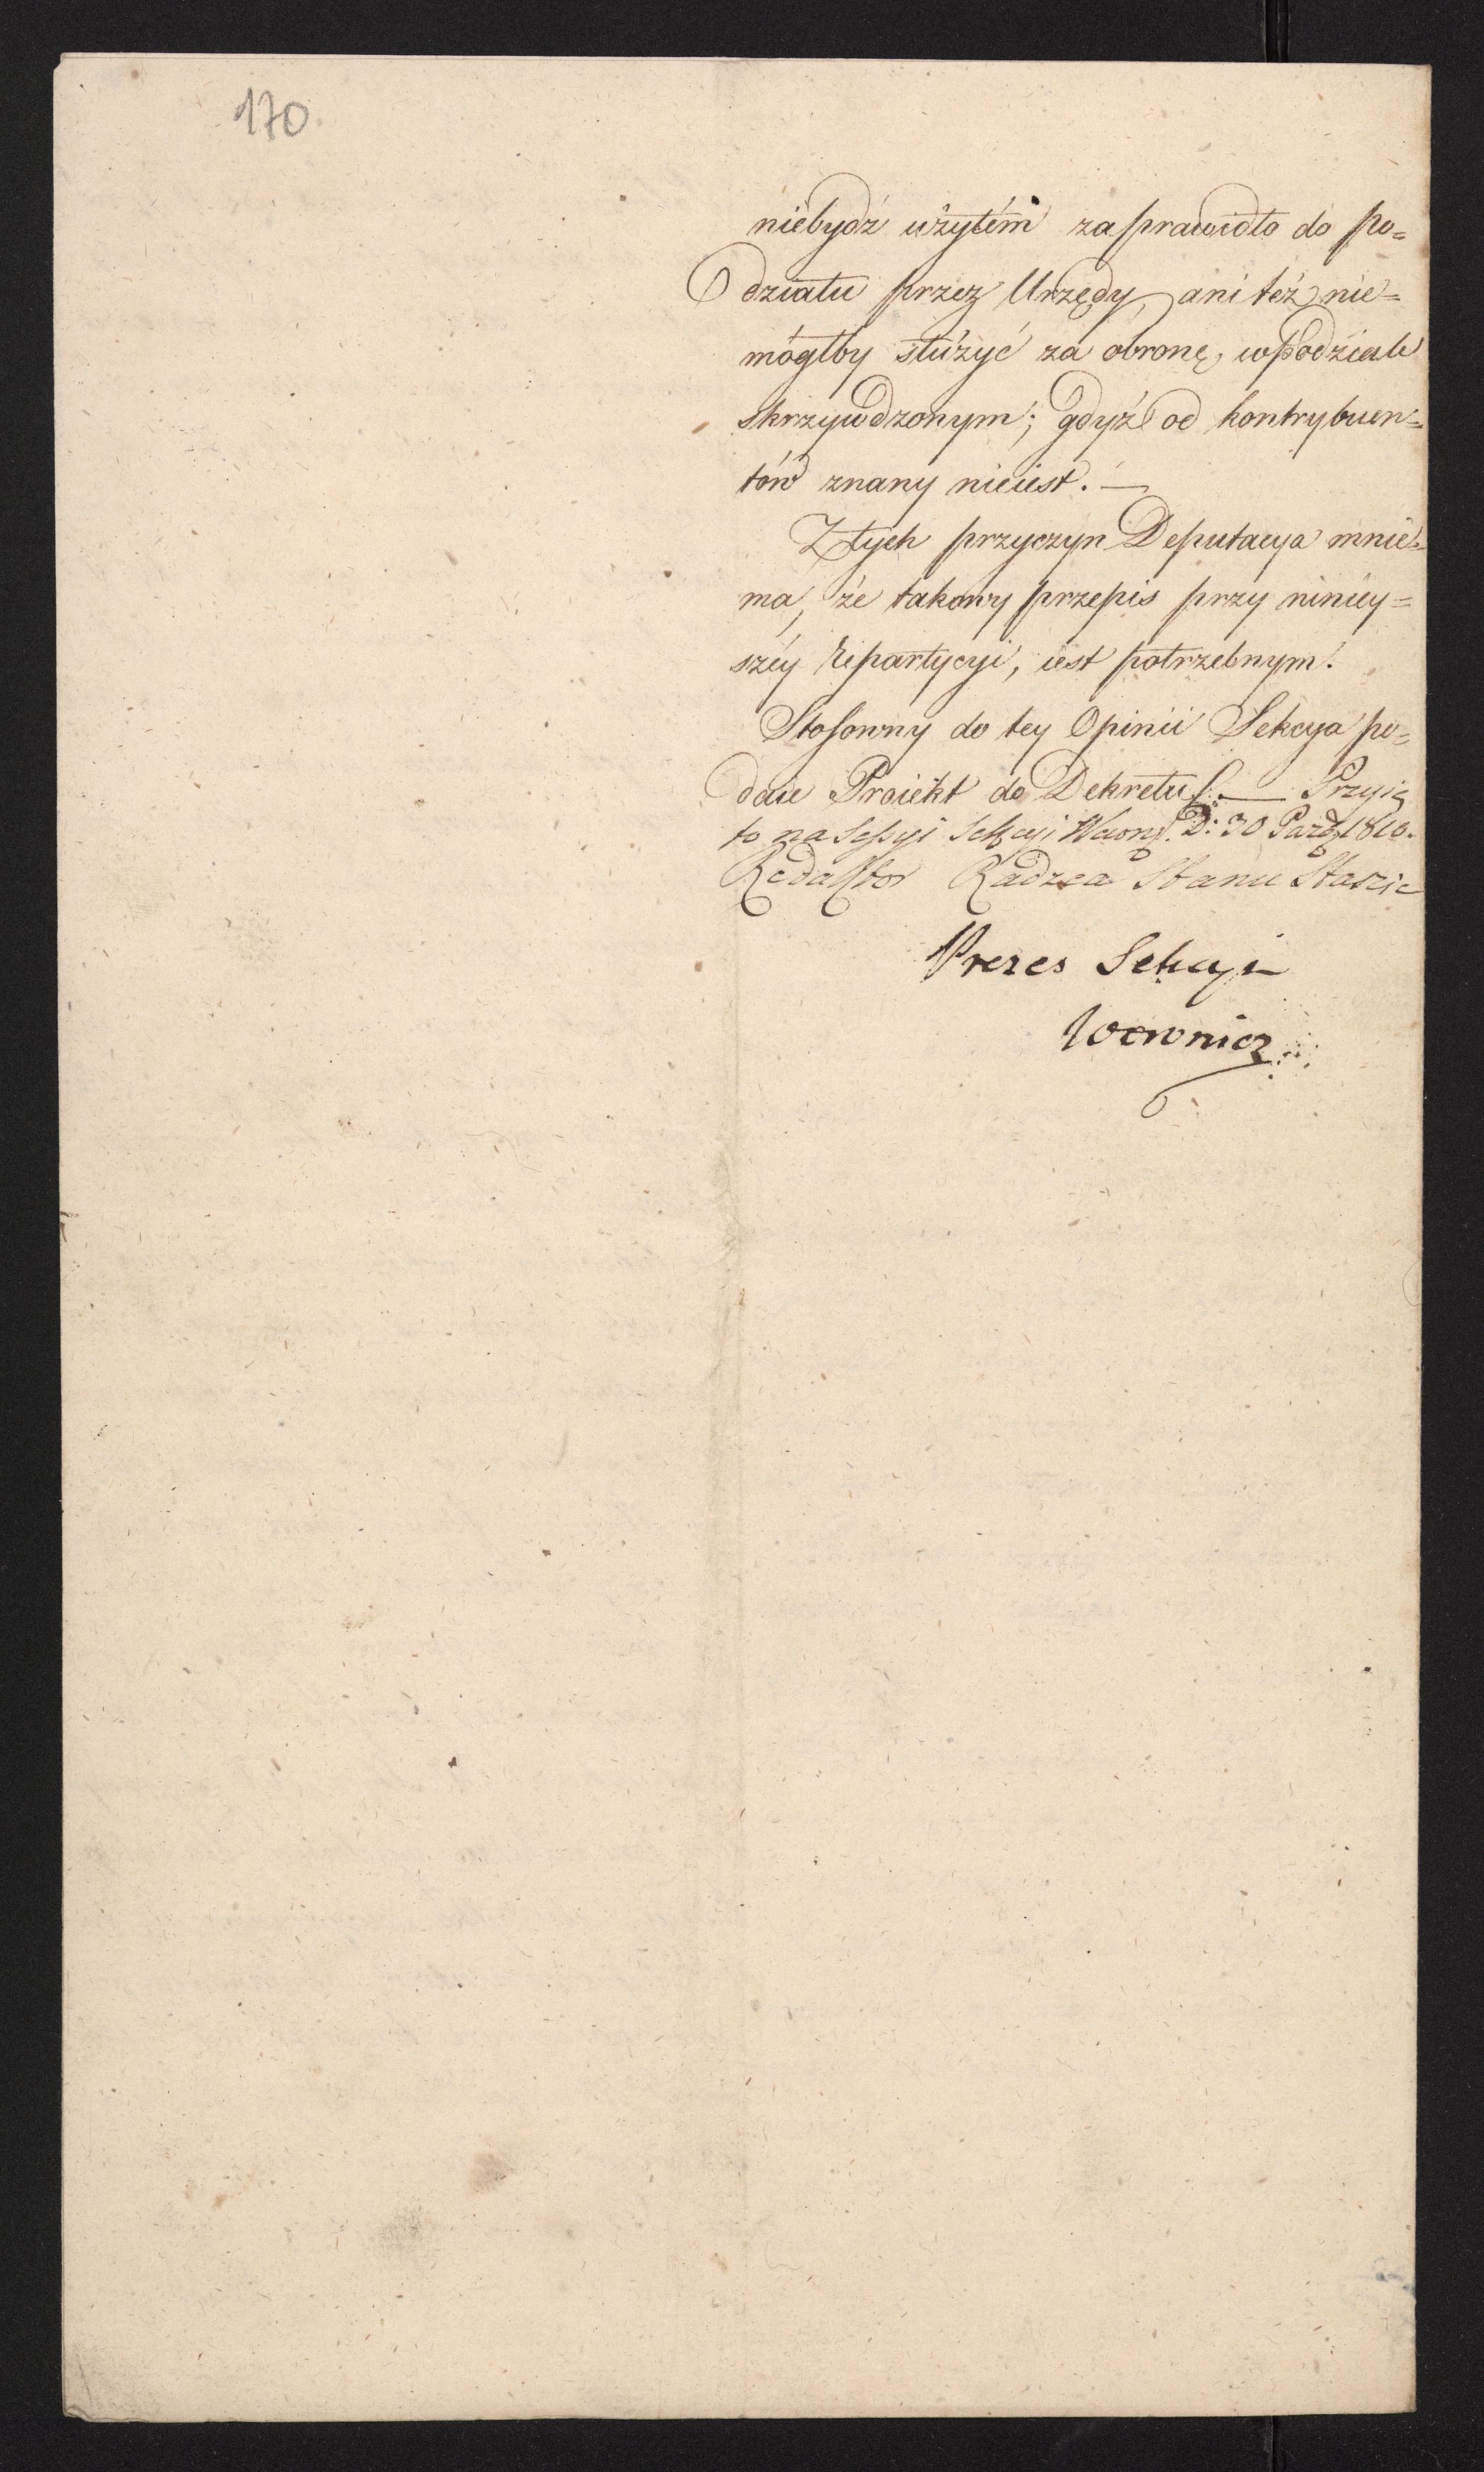 170
niebydź użytém za prawidło do po=
działu przez Urzędy, ani też nie=
mógłby służyć za obronę, w podziale
skrzywdzonym; gdyż od kontrybuen=
tów znany nieiest. —
Z tych przyczyn Deputacya mnie=
ma, że takowy przepis przy niniey=
széy repartycyi, iest potrzebnym.
Stosowny do tey Opinii Sekcya po=
daie Proiekt do Dekretu. — Przyię
to na Sessyi Sekcyi D: 30 Paźd 1810.
Redaktor Radzca Stanu Staszic
Prezes Sekcyi
Woronicz